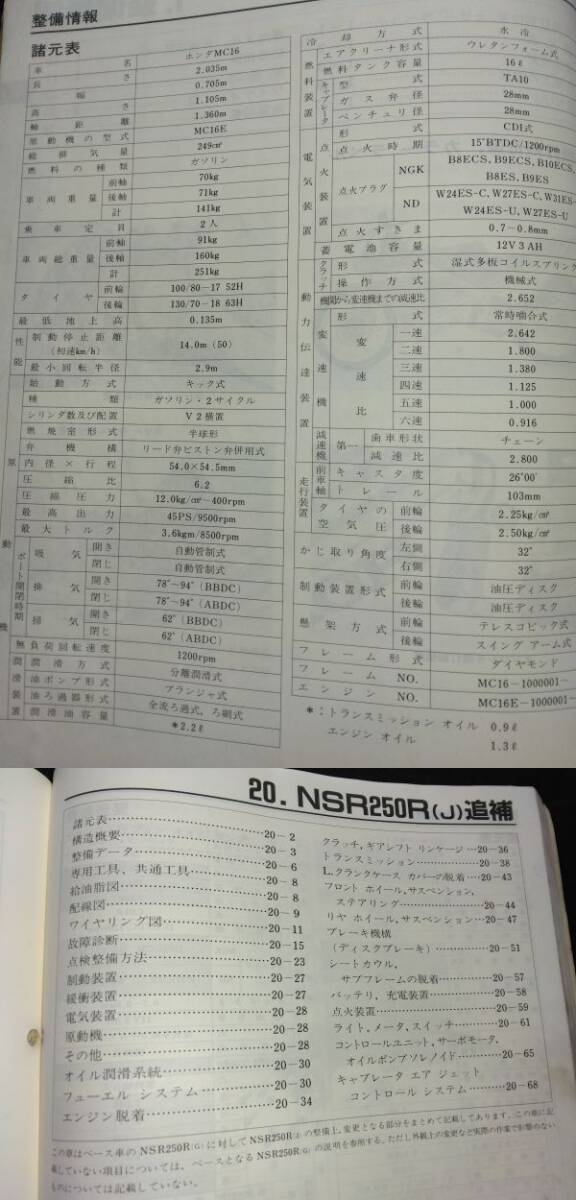 整備情報
諸元表
車名 ホンダMC16
長さ 2.035m
幅 0.705m
高さ 1.105m
軸距離 1.360m
原動機の型式 MC16E
総排気量 249㎤
燃料の種類 ガソリン
車両重量 前軸 70kg
後軸 71kg
計 141kg
乗車定員 2人
車両総重量 前軸 91kg
後軸 160kg
計 251kg
タイヤ 前輪 100/80-17 52H
後輪 130/70-18 63H
最低地上高 0.135m
性能 制動停止距離(初速km/h) 14.0m (50)
最小回転半径 2.9m
原動機
始動方式 キック式
種類 ガソリン・2サイクル
シリンダ数及び配置 V2横置
燃焼室形式 半球形
弁機構 リード弁ピストン弁併用式
内径×行程 54.0×54.5mm
圧縮比 6.2
圧縮圧力 12.0kg/㎠-400rpm
最高出力 45PS/9500rpm
最大トルク 3.6kgm/8500rpm
ポート開閉時期 吸気 開き 自動管制式
閉じ 自動管制式
排気 開き 78°~94° (BBDC)
閉じ 78°~94° (ABDC)
掃気 開き 62° (BBDC)
閉じ 62° (ABDC)
無負荷回転速度 1200rpm
潤滑装置 潤滑方式 分離潤滑式
油ポンプ形式 プランジャ式
油ろ過器形式 全流ろ過式,ろ網式
潤滑油容量 *2.2ℓ
冷却方式 水冷
燃料装置 エアクリーナ形式 ウレタンフォーム式
燃料タンク容量 16ℓ
キャブレータ 型式 TA10
ガス弁径 28mm
ベンチュリ径 28mm
電気装置 点火装置 形式 CDI式
点火時期 15°BTDC/1200rpm
点火プラグ NGK B8ECS, B9ECS, B10ECS,
B8ES, B9ES
ND W24ES-C, W27ES-C, W31ES-
W24ES-U, W27ES-U
点火すきま 0.7-0.8mm
蓄電池容量 12V 3AH
動力伝達装置
クラッチ 形式 湿式多板コイルスプリング
操作方式 機械式
機関から変速機までの減速比 2.652
変速機 形式 常時噛合式
変速比 一速 2.642
二速 1.800
三速 1.380
四速 1.125
五速 1.000
六速 0.916
減速機 第一 歯車形状 チェーン
減速比 2.800
走行装置 前車軸 キャスタ度 26°00′
トレール 103mm
タイヤの空気圧 前輪 2.25kg/㎠
後輪 2.50kg/㎠
かじ取り角度 左側 32°
右側 32°
制動装置形式 前輪 油圧ディスク
後輪 油圧ディスク
懸架方式 前輪 テレスコピック式
後輪 スイングアーム式
フレーム形式 ダイヤモンド
フレームNO. MC16-1000001-
エンジンNO. MC16E-1000001-
*:トランスミッション オイル 0.9ℓ
エンジン オイル 1.3ℓ
20. NSR250R(J)追補
諸元表……20-2
構造概要……20-3
整備データ……20-6
専用工具、共通工具……20-8
給油脂図……20-8
配線図……20-9
ワイヤリング図……20-11
故障診断……20-15
点検整備方法……20-23
制動装置……20-27
緩衝装置……20-27
電気装置……20-28
原動機……20-28
その他……20-28
オイル潤滑系統……20-30
フューエル システム……20-30
エンジン脱着……20-34
クラッチ,ギアシフト リンケージ…20-36
トランスミッション……20-38
L.クランクケース カバーの脱着…20-43
フロント ホイール,サスペンション,
ステアリング……20-44
リヤ ホイール,サスペンション…20-47
ブレーキ機構
(ディスクブレーキ)……20-51
シートカウル,
サブフレームの脱着……20-57
バッテリ,充電装置……20-58
点火装置……20-59
ライト,メータ,スイッチ……20-61
コントロールユニット,サーボモータ,
オイルポンプソレノイド……20-65
キャブレータ エア ジェット
コントロール システム……20-68
この章はベース車のNSR250R(G)に対してNSR250R(J)の整備上,変更となる部分をまとめて記載してあります。この章に記
載していない項目については、ベースとなるNSR250R(G)の説明を参照する。ただし外観上の変更など実際の作業で影響のない
ものについては記載していない。